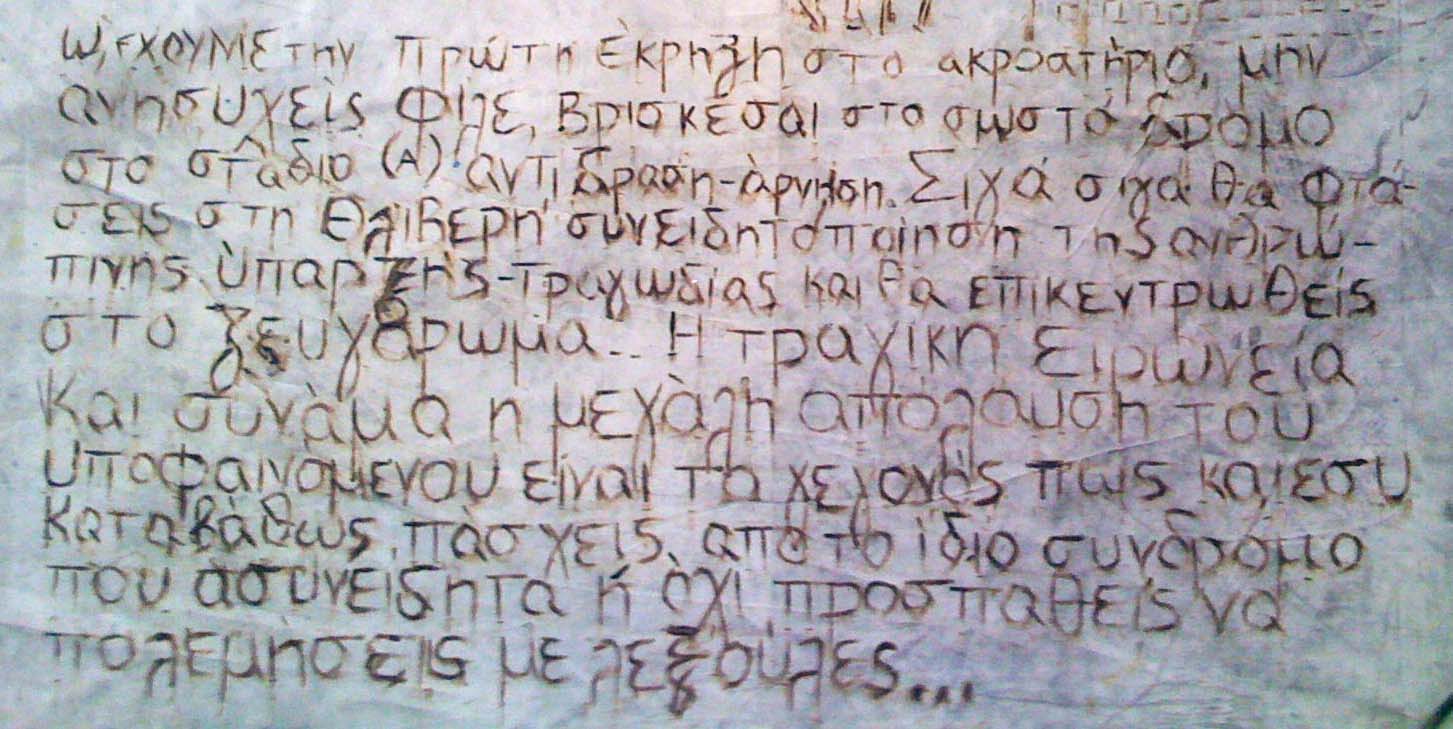 ω, εχουΜε την πρώτη έκρηξη στο ακροατήριο, μην
ανησυχείς φίλε, βρισκέσαι στο σωστό δρόμο
στο στάδιο (Α)! αντίδραση-άρνηση. Σιγά σιγά θα φτά-
σεις στη θλιβερή συνειδητοποίηση της ανθρώ-
πινης ύπαρξης-τραγωδίας και θα επικεντρωθείς
στο ζευγάρωμα... Η τραγική ειρωνεία
και συνάμα η μεγάλη απόλαυση του
υποφαινόμενου είναι το γεγονός πως και εσυ
κατα βάθως, πάσχεις, από το ίδιο συνδρομο
που ασυνείδητα ή όχι προσπαθείς να
πολεμήσεις με λεξούλες...